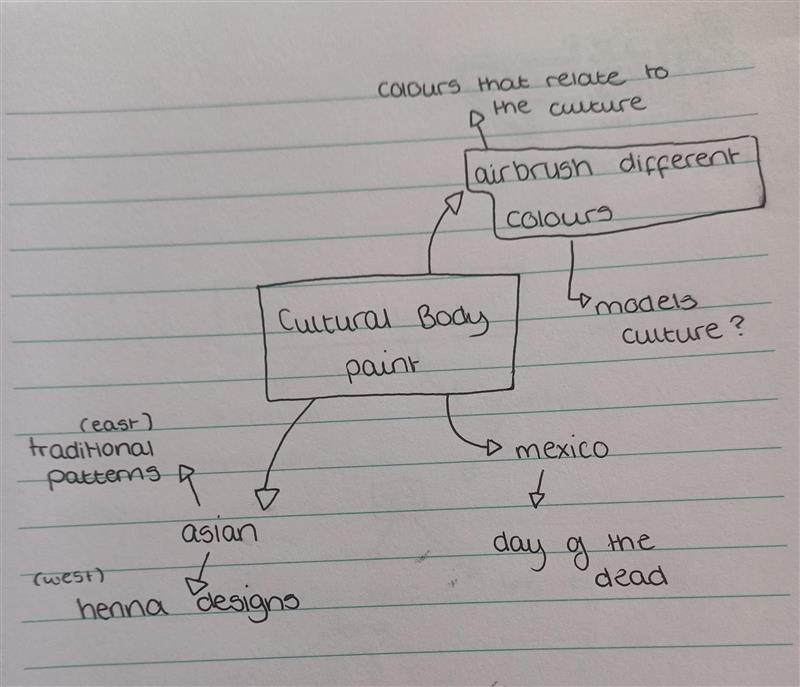 colours that relate to
the culture
airbrush different
colours
models
culture?
Cultural Body
paint
(east)
traditional
patterns
asian
(west)
henna designs
mexico
day of the
dead